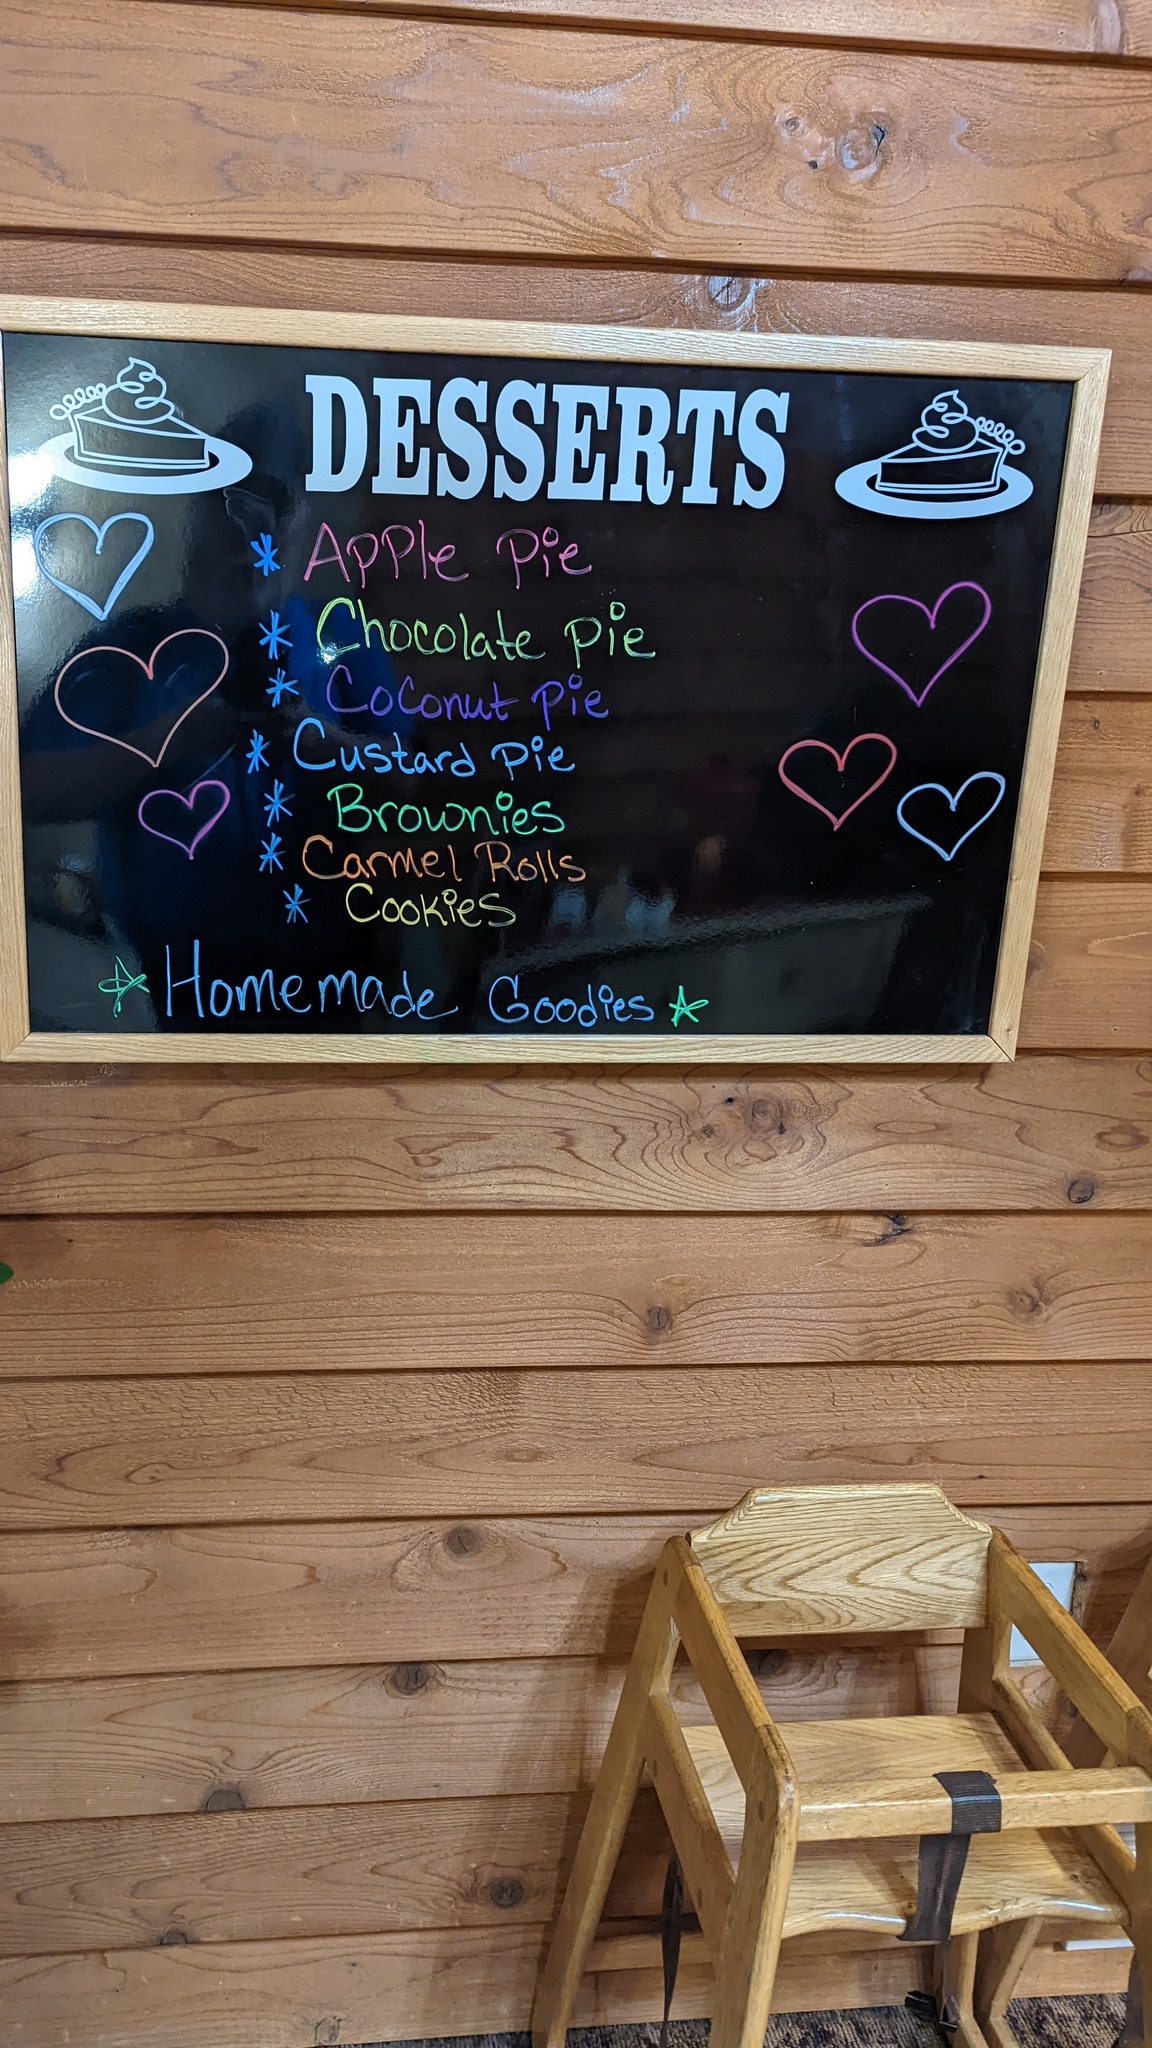 DESSERTS
* Apple Pie
* Chocolate Pie
* Coconut Pie
* Custard Pie
* Brownies
* Carmel Rolls
* Cookies
☆ Homemade Goodies ☆